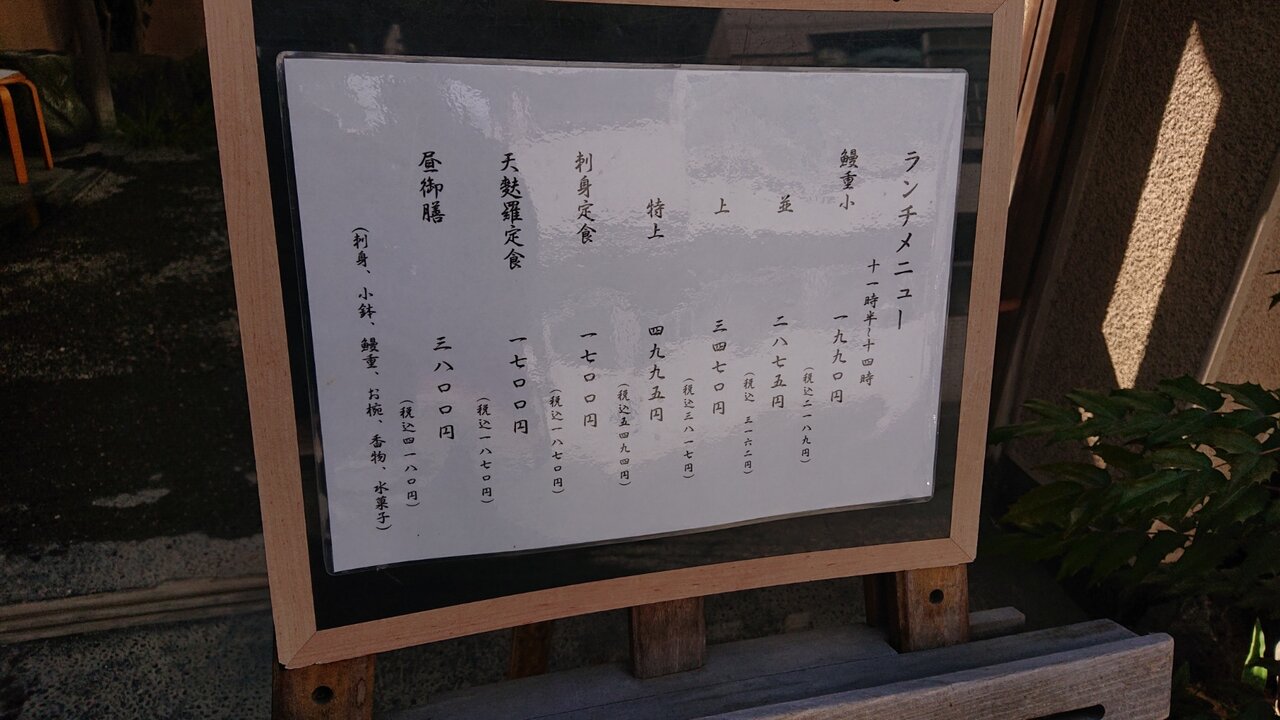 ランチメニュー
十一時半~十四時
鰻重小 一九九〇円
(税込二一八九円)
並 二八七五円
(税込 三一六二円)
上 三四七〇円
(税込三八一七円)
特上 四九九五円
(税込五四九四円)
刺身定食 一七〇〇円
(税込一八七〇円)
天麩羅定食 一七〇〇円
(税込一八七〇円)
昼御膳 三八〇〇円
(税込四一八〇円)
(刺身、小鉢、鰻重、お椀、香物、水菓子)